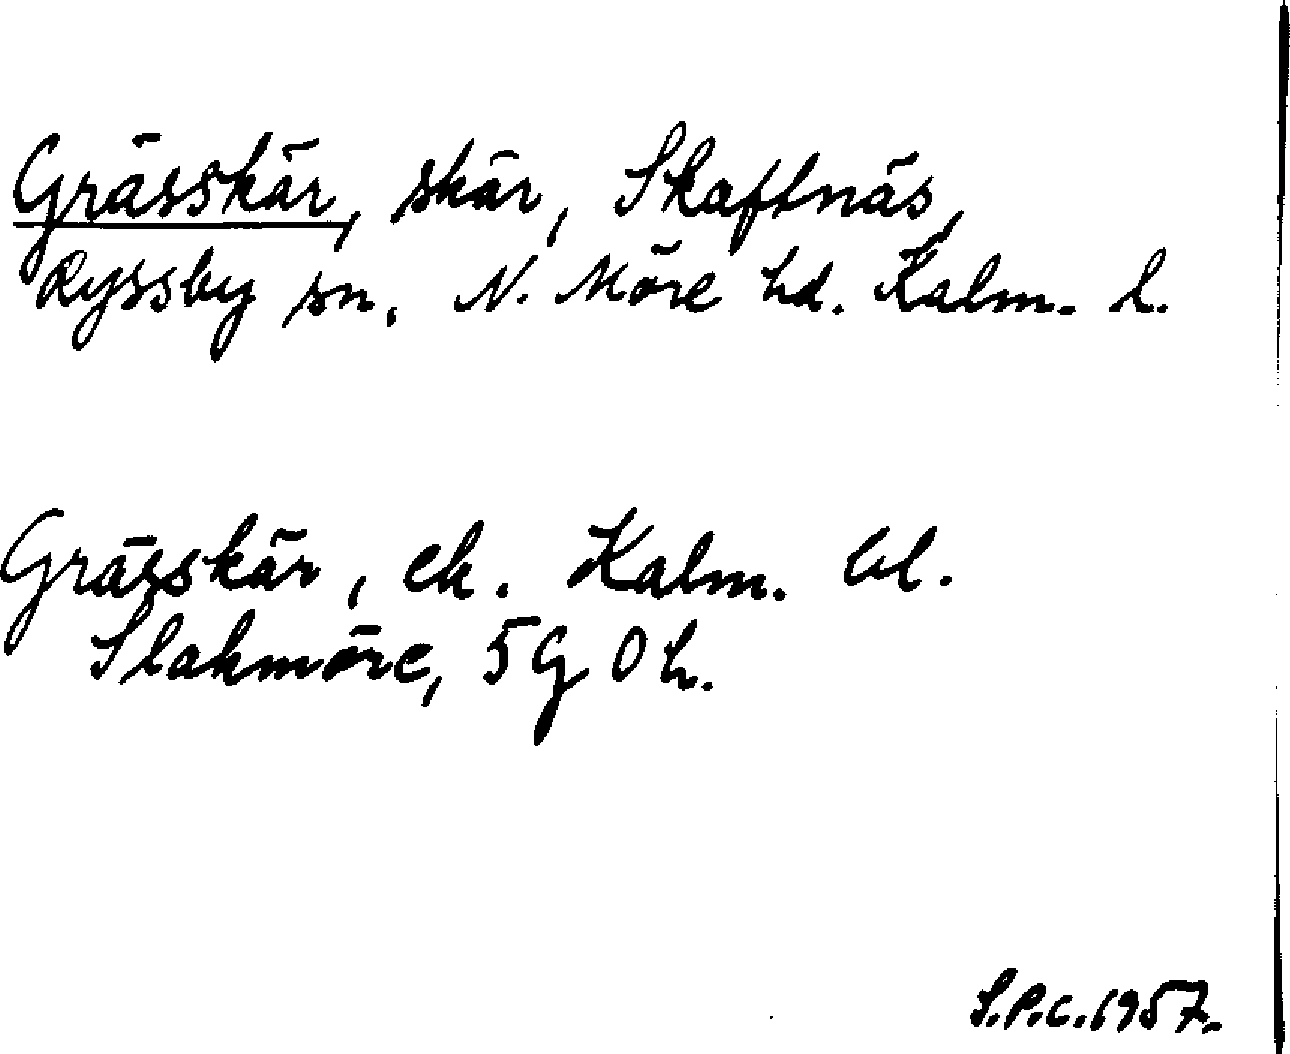 Grässkär, skär, Skaftnäs,
Ryssby sn. N. Möre hd. Kalm. l.
Grässkär, ek. Kalm. bl.
Slakmöre, 5 G 0 h.
S.P.C. 1957.